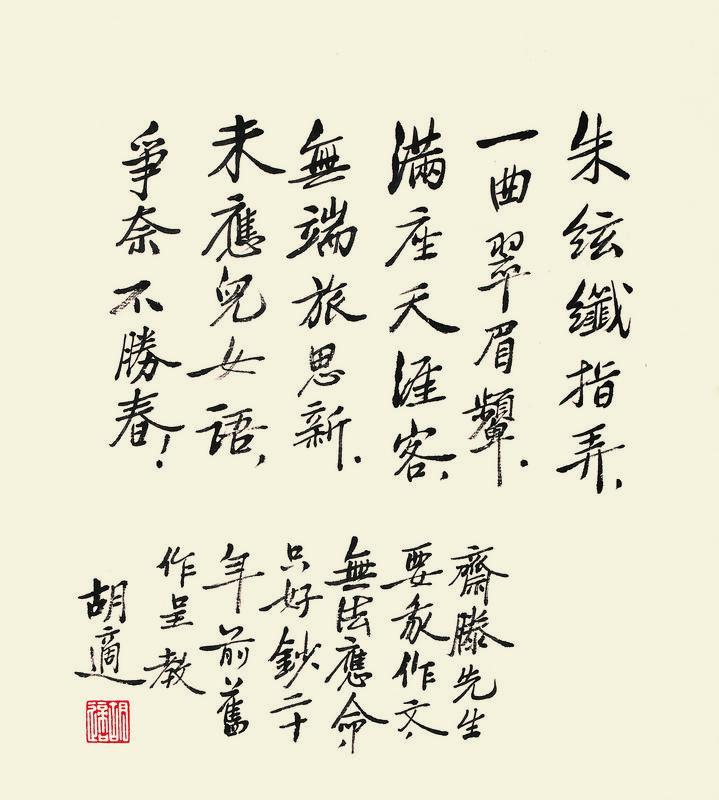 朱絃纖指弄，
一曲翠眉顰．
滿座天涯客，
無端旅思新．
未應兒女語，
爭奈不勝春！
齋滕先生
要我作文，
無法應命，
只好鈔二十
年前舊
作呈教
胡適
胡適